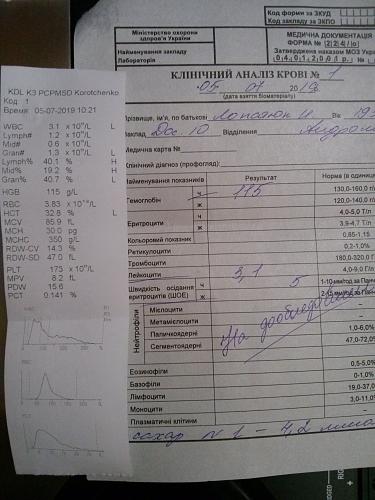 KDL K3 PCPM5D Korotchenko
Код: 1
Время: 05-07-2019 10:21
WBC 3.1 x 10⁹/L L
Lymph# 1.2 x 10⁹/L
Mid# 0.6 x 10⁹/L
Gran# 1.3 x 10⁹/L L
Lymph% 40.1 % H
Mid% 19.2 % H
Gran% 40.7 % L
HGB 115 g/L
RBC 3.83 x 10¹²/L
HCT 32.8 % L
MCV 85.9 fL
MCH 30.0 pg
MCHC 350 g/L
RDW-CV 14.3 %
RDW-SD 47.0 fL
PLT 173 x 10⁹/L
MPV 8.2 fL
PDW 15.6
PCT 0.141 %
WBC
RBC
PLT
Код форми за ЗКУД
Код закладу за ЗКПО
Міністерство охорони
здоров'я України
Найменування закладу
Лабораторія
МЕДИЧНА ДОКУМЕНТАЦІЯ
ФОРМА № 224/о
Затверджена наказом МОЗ Україн
04.01.2001 р. №
КЛІНІЧНИЙ АНАЛІЗ КРОВІ № 1
05 07 2019
(дата взяття біоматеріалу)
Прізвище, ім'я, по батькові
Заклад 10 Відділення
Медична карта №
Клінічний діагноз (профогляд):
Найменування показників Результат Норма (в одиниц
Гемоглобін ч 115 130,0-160,0 г/л
ж 120,0-140,0 г/л
Еритроцити ч 4,0-5,0 Т/л
ж 3,9-4,7 Т/л
Кольоровий показник 0,85-1,15
Ретикулоцити 0,2-1,0%
Тромбоцити 180,0-320,0 Г/
Лейкоцити 3,1 4,0-9,0 Г/л
Швидкість осідання
еритроцитів (ШОЕ) ч 5 1-10 мм/год за Панч
ж 2-15 мм/год за Панч
Нейтрофіли
Мієлоцити
Метамієлоцити
Паличкоядерні 1,0-6,0%
Сегментоядерні 47,0-72,0%
На дообследование
Еозинофіли 0,5-5,0%
Базофіли 0-1,0%
Лімфоцити 19,0-37,0
Моноцити 3,0-11,0
Плазматичні клітини
сахар N 1 – 4,2 ммол